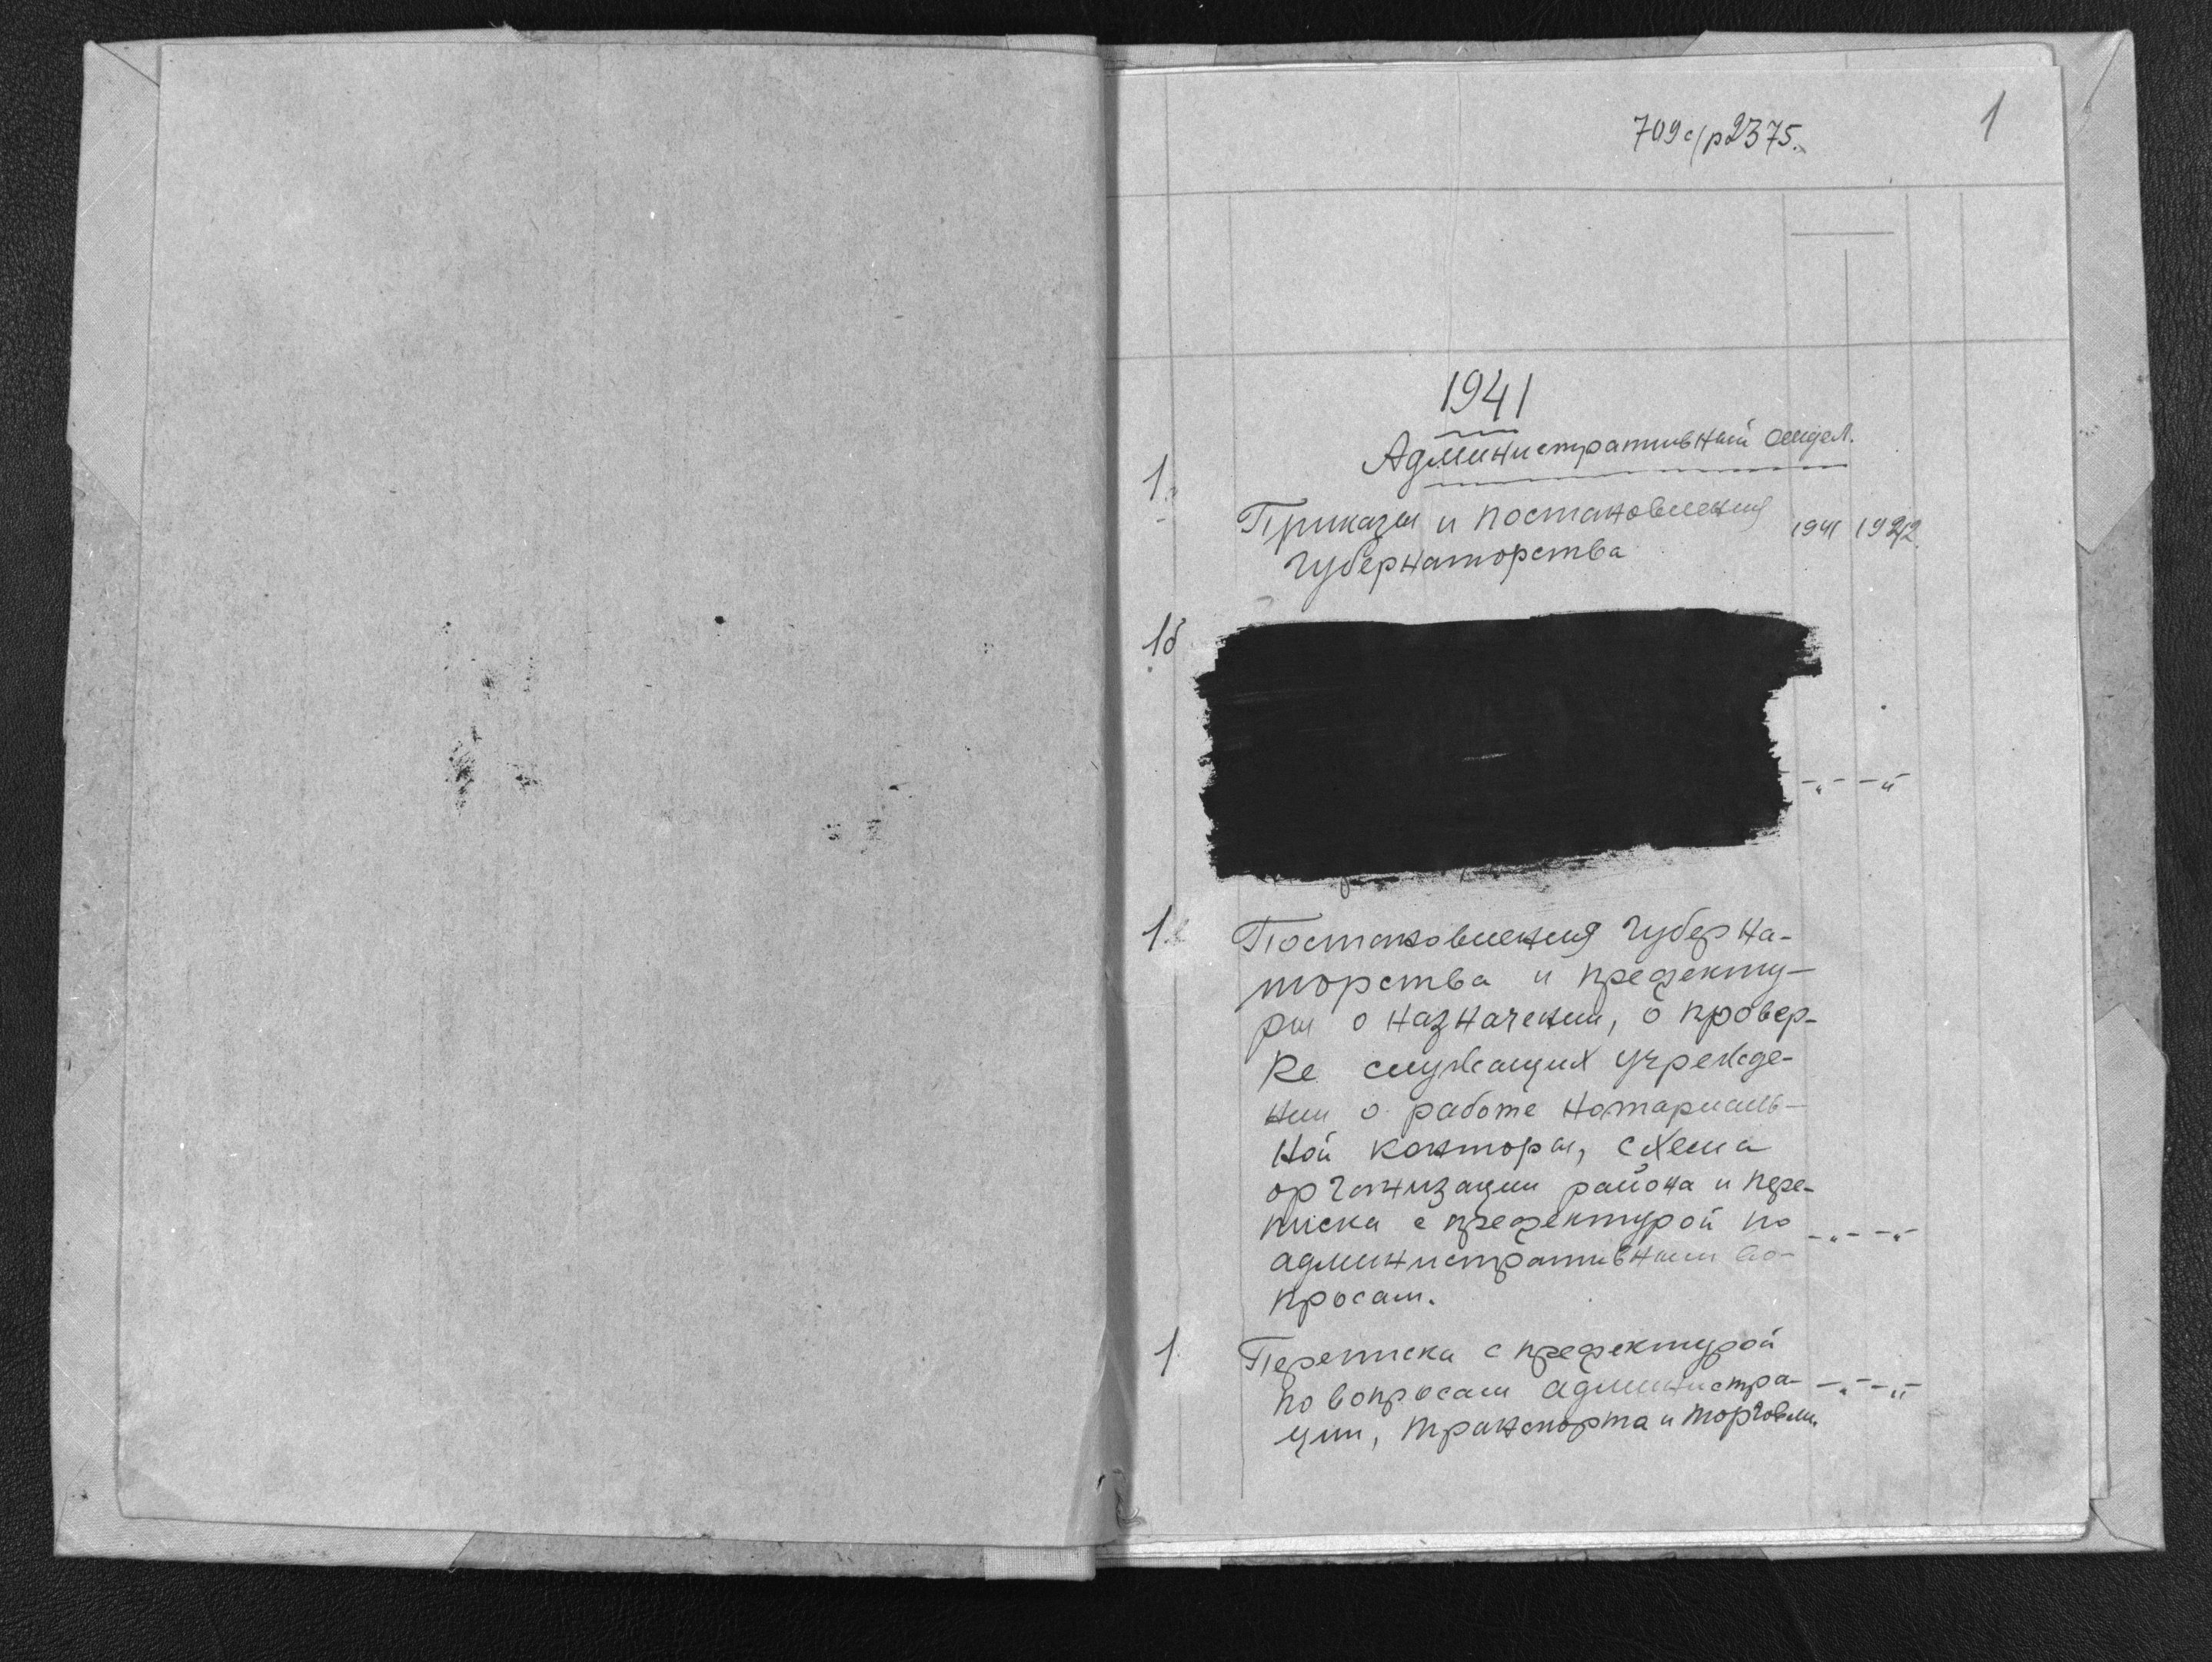 709 с/р2375.
1
1941
Административный отдел.
1а
Приказы и постановления 1941 1942
Губернаторства
1б
-„- -„-
1в Постановления Губерна-
торства и префекту-
ры о назначении, о провер-
ке служащих учрежде-
нии о работе нотариаль-
ной конторы, схема
организации района и пере-
писка с префектурой по -„- -„-
административным во-
просам.
1 Переписка с префектурой
по вопросам администра- -„- -„-
ции, транспорта и торговли.